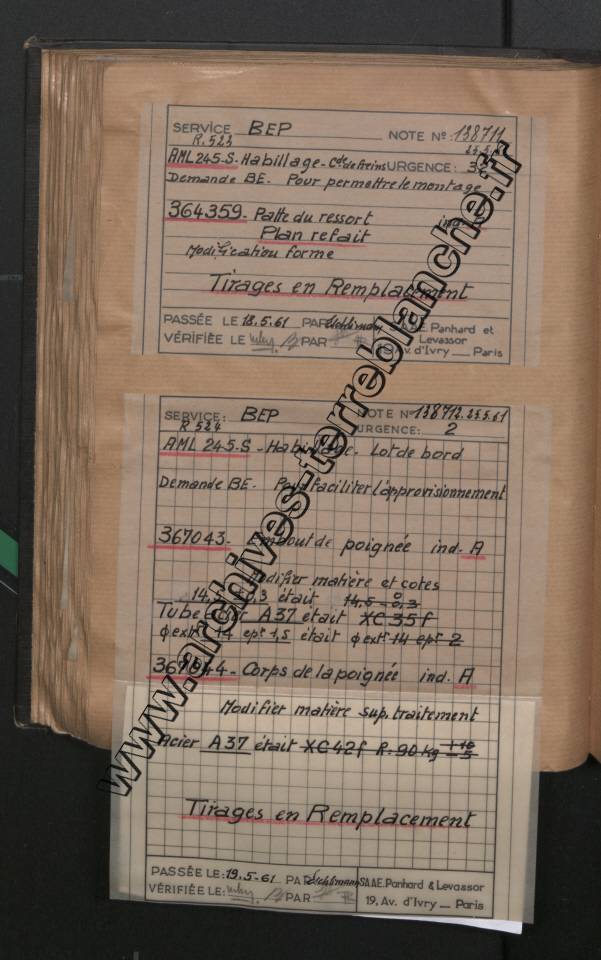 SERVICE BEP NOTE Nº: 138711
R.523 25.5.
AML 245-S- Habillage - Cde de freins URGENCE:
Demande BE. Pour permettre le montage
364359- Patte du ressort ind.
Plan refait
Modification forme
Tirages en Remplacement
PASSÉE LE 18.5.61 PAR SAAE. Panhard et
Levassor
VÉRIFIÉE LE PAR 19 Av. d'Ivry __ Paris
SERVICE: BEP NOTE Nº 138712. 25.5.61
R 524 URGENCE: 2
AML 245-S - Habillage. Lot de bord
Demande BE- Pour faciliter l'approvisionnement
367043- Embout de poignée ind. A
Modifier matière et cotes
était 14,5 - 0,3
Tube A37 était XC 35 f
φ extr 14 epr 1,5 était φ extr 14 epr 2
367044- Corps de la poignée ind. A
Modifier matière sup. traitement
Acier A37 était XC42f R-90 kg +10 -5
Tirages en Remplacement
PASSÉE LE: 19.5-61 PAR SAAE. Panhard & Levassor
VÉRIFIÉE LE: PAR 19, Av. d'Ivry __ Paris
www.archives-terreblanche.fr